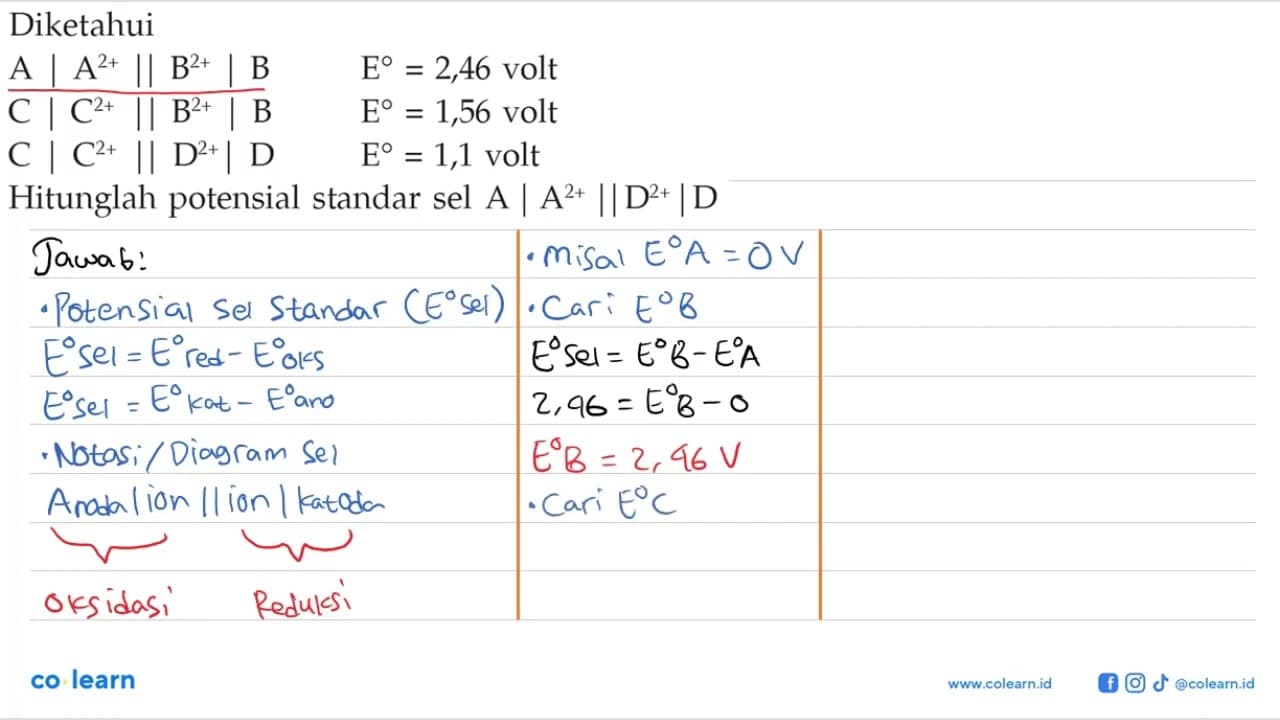 Diketahui
A | A²⁺ || B²⁺ | B E° = 2,46 volt
C | C²⁺ || B²⁺ | B E° = 1,56 volt
C | C²⁺ || D²⁺ | D E° = 1,1 volt
Hitunglah potensial standar sel A | A²⁺ || D²⁺ | D
Jawab:
• Potensial Sel Standar (E°sel)
E°sel = E°red - E°oks
E°sel = E°kat - E°ano
• Notasi/Diagram Sel
Anoda | ion || ion | katoda
Oksidasi Reduksi
• Misal E°A = 0 V
• Cari E°B
E°sel = E°B - E°A
2,96 = E°B - 0
E°B = 2,96 V
• Cari E°C
co learn
www.colearn.id
@colearn.id